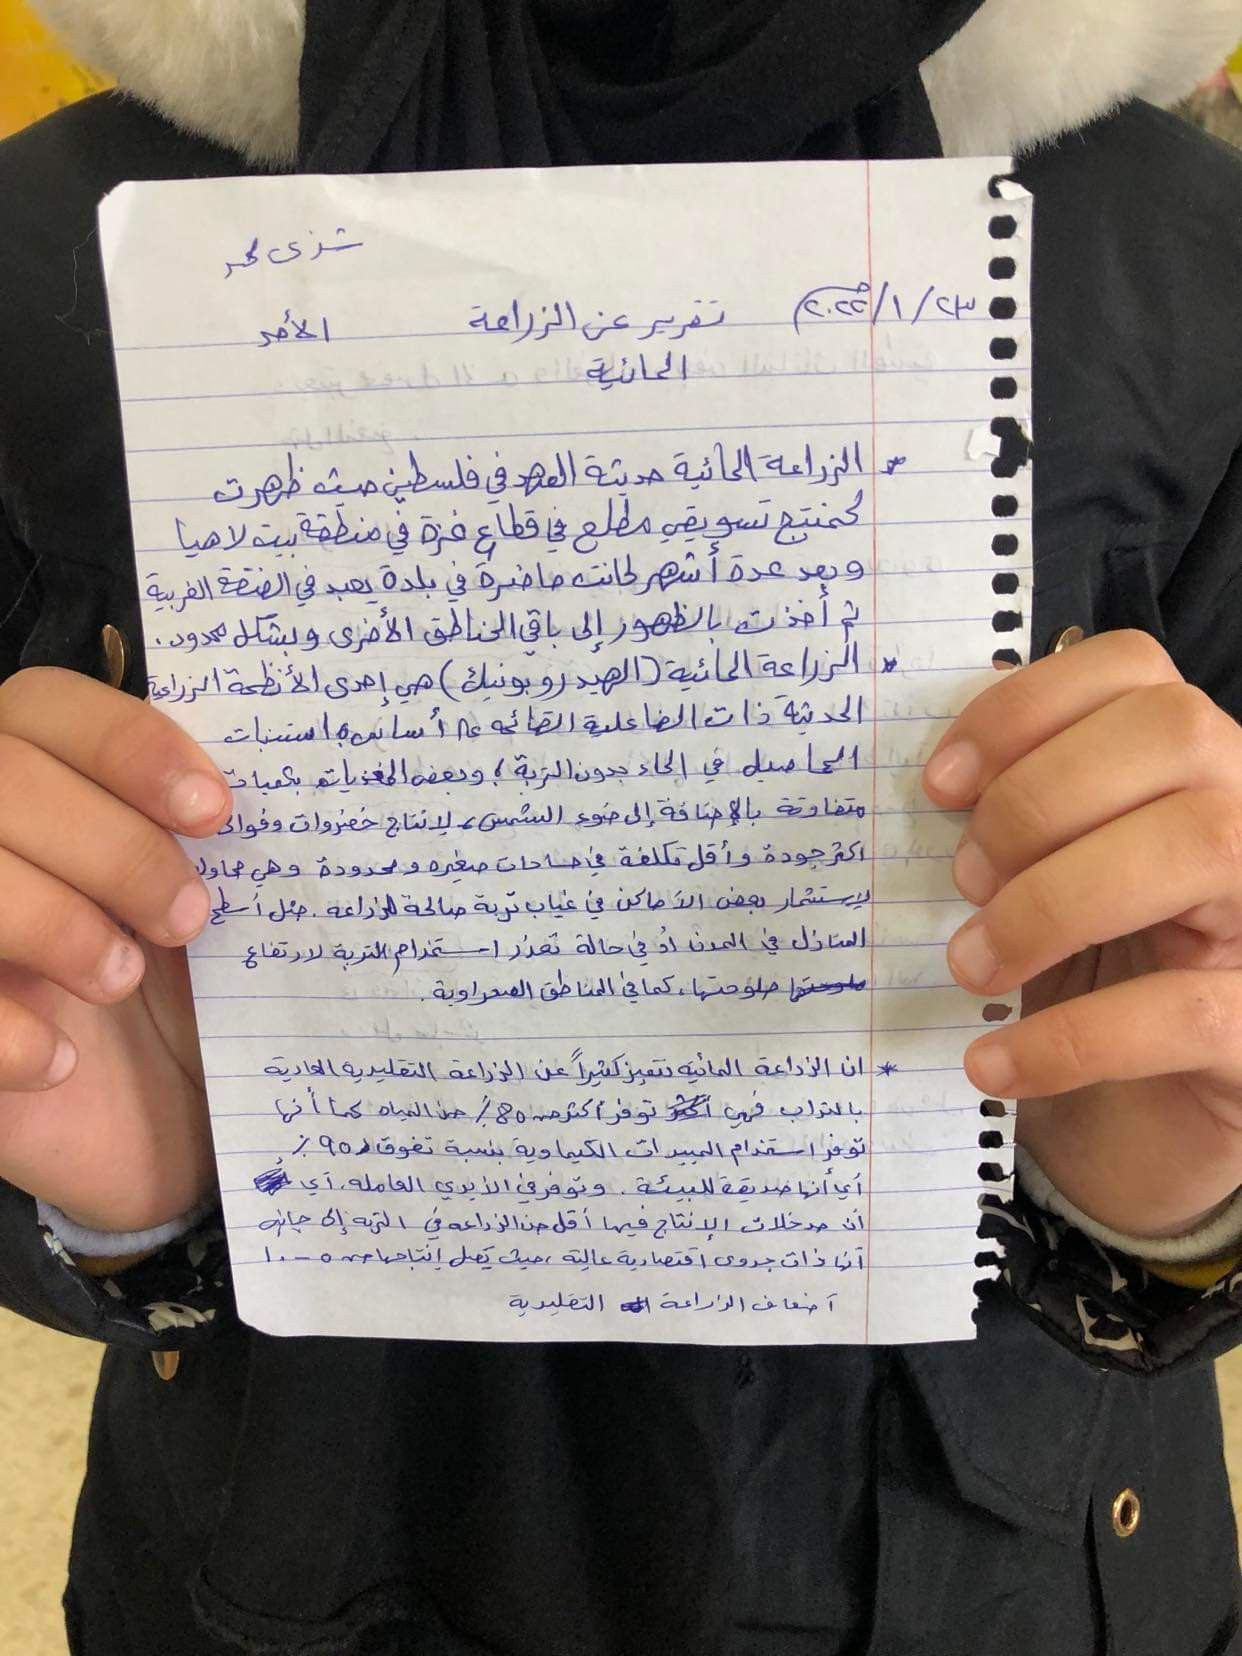 شذى محمد
٢٣/١/٢٠٢٢م تقرير عن الزراعة الأحد
المائية
* الزراعة المائية حديثة العهد في فلسطين حيث ظهرت
كمنتج تسويقي مطلع في قطاع غزة في منطقة بيت لاهيا
وبعد عدة أشهر كانت حاضرة في بلدة يعبد في الضفة الغربية
ثم أخذت بالظهور إلى باقي المناطق الأخرى وبشكل محدود.
* الزراعة المائية (الهيدروبونيك) هي إحدى الأنظمة الزراعية
الحديثة ذات الفاعلية القائمه على أساس استنبات
المحاصيل في الماء بدون التربة، وبعض المغذيات بكميات
متفاوتة بالإضافة إلى ضوء الشمس، لإنتاج خضروات وفواكه
اكثر جودة وأقل تكلفة في مساحات صغيره ومحدودة وهي محاولة
لإستثمار بعض الأماكن في غياب تربة صالحة للزراعه. مثل أسطح
المنازل في المدن أو في حالة تعذر استخدام التربة لارتفاع
ملوحتها، كما في المناطق الصحراوية.
* ان الزراعة المائيه تتميز كثيراً عن الزراعة التقليديه العادية
بالتراب فهي توفر أكثر من ٨٥٪ من المياه كما أنها
توفر استخدام المبيدات الكيماوية بنسبة تفوق ٩٥٪
أي أنها صديقة للبيئة. وتوفر في الأيدي العامله، أي
أن مدخلات الإنتاج فيها أقل من الزراعه في التربه إلى جانب
أنها ذات جدوى اقتصادية عالية، حيث يصل إنتاجها من ٥-١٠
أضعاف الزراعة التقليدية